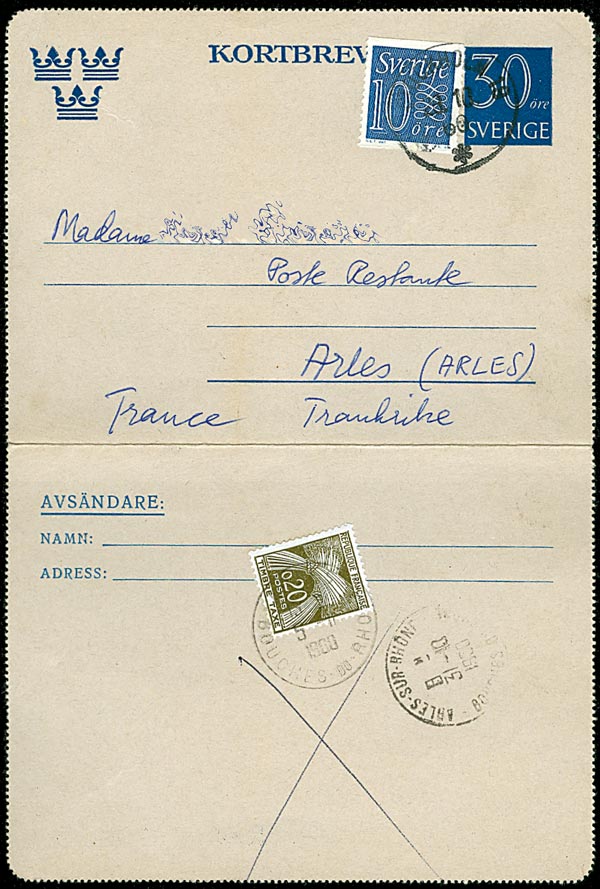 KORTBREV
Sverige
10
öre
30
öre
SVERIGE
Madame
Poste Restante
Arles (ARLES)
France Frankrike
AVSÄNDARE:
NAMN:
ADRESS:
REPUBLIQUE FRANCAISE
0,20
POSTES
TIMBRE TAXE
5
1960
BOUCHES-DU-RHO
ARLES-SUR-RHÔNE